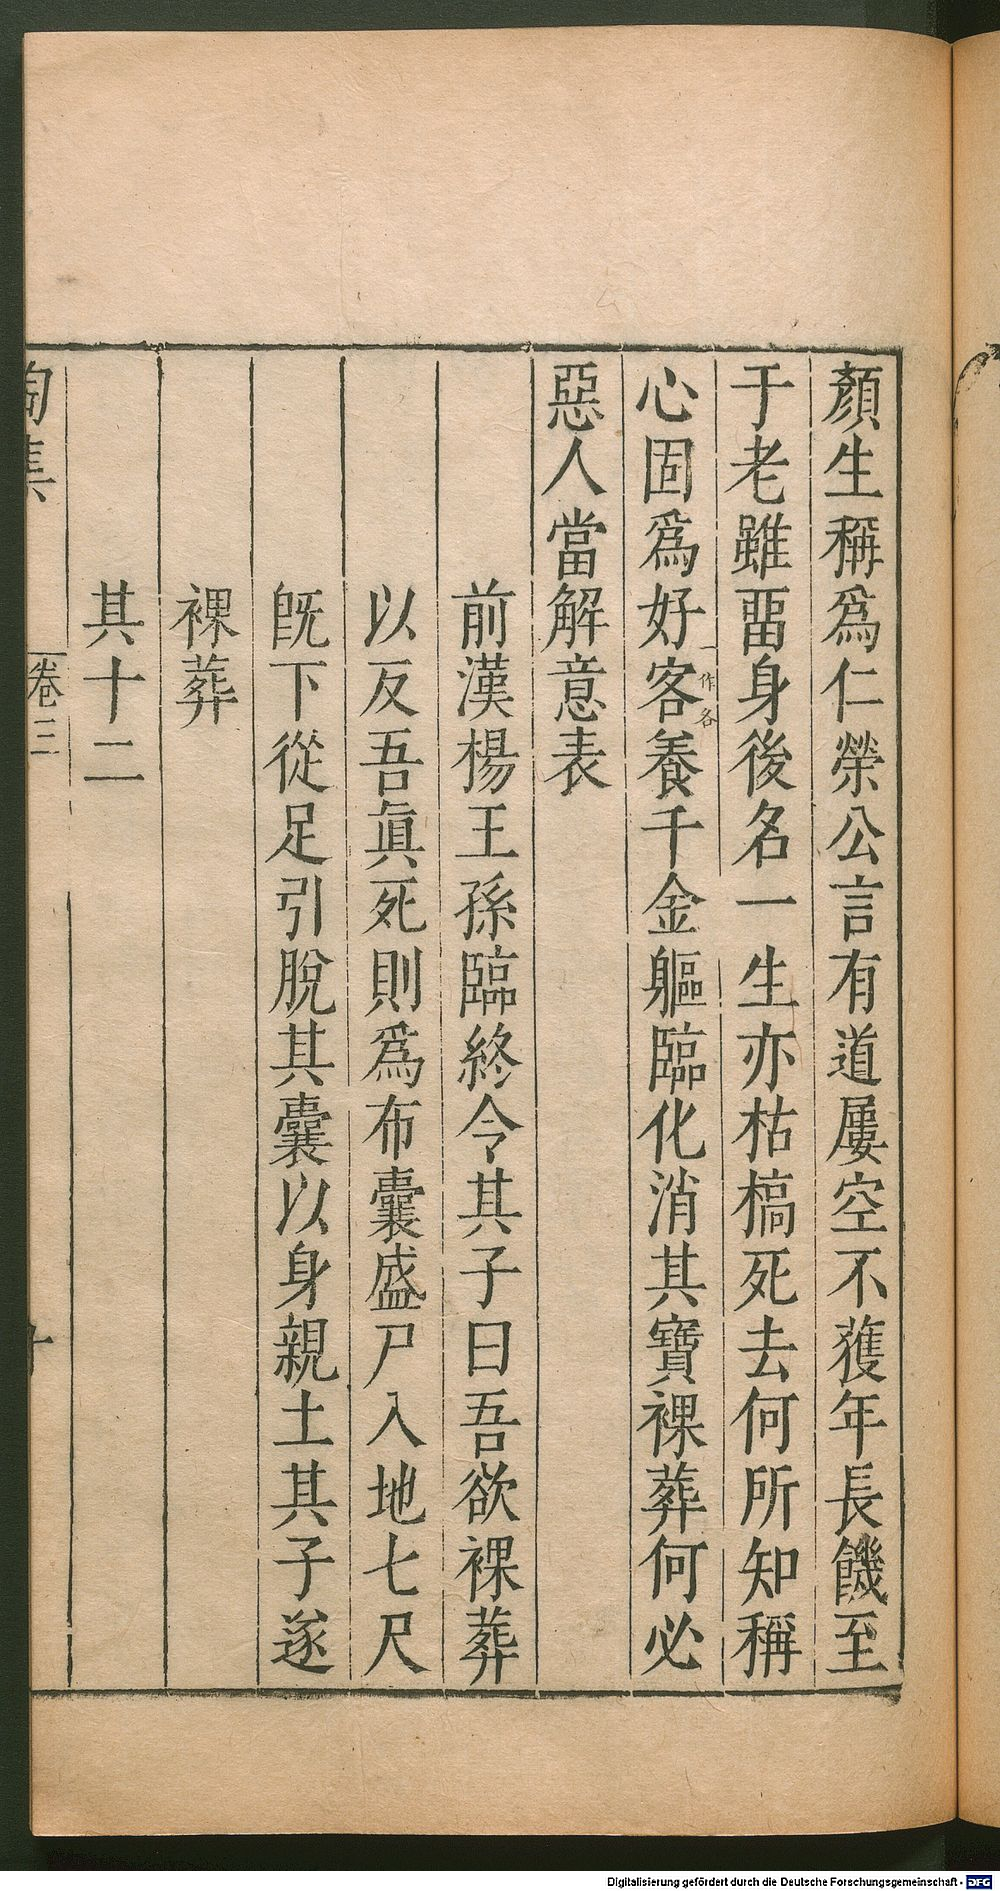 顏生稱爲仁榮公言有道屢空不獲年長饑至
于老雖畱身後名一生亦枯槁死去何所知稱
心固爲好客養千金軀臨化消其寶裸葬何必
一作各
惡人當解意表
前漢楊王孫臨終令其子曰吾欲裸葬
以反吾眞死則爲布囊盛尸入地七尺
旣下從足引脫其囊以身親土其子遂
裸葬
其十二
陶集
卷三
十
Digitalisierung gefördert durch die Deutsche Forschungsgemeinschaft - DFG